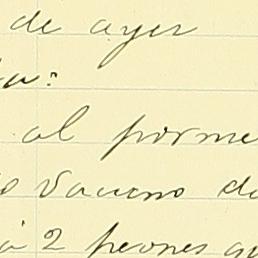 de ayer
al porme
Vacuno de
á 2 peones qu